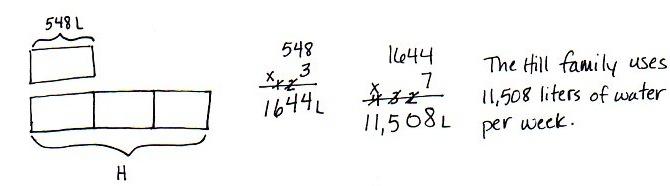 548 L
H
548
x 3
1 2
1644 L
1644
x 7
4 3 2
11,508 L
The Hill family uses
11,508 liters of water
per week.